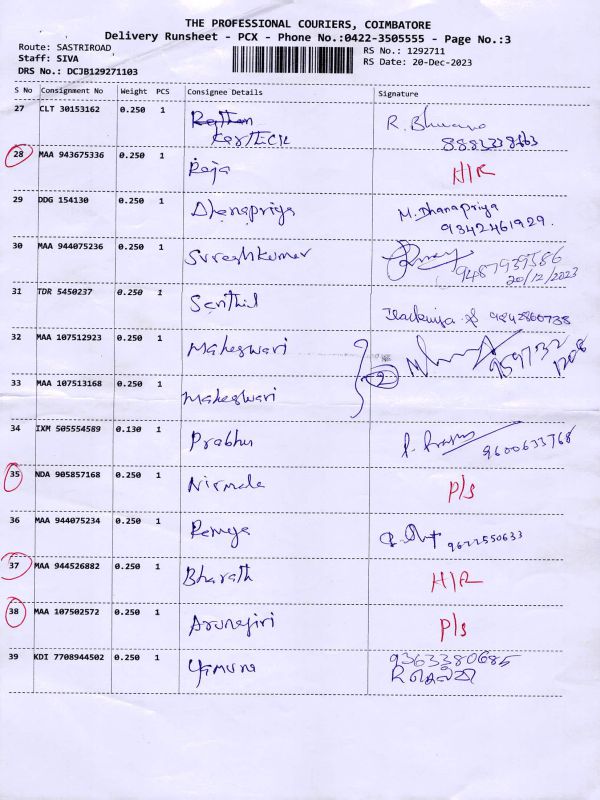 THE PROFESSIONAL COURIERS, COIMBATORE
Delivery Runsheet - PCX - Phone No.:0422-3505555 - Page No.:3
Route: SASTRIROAD
Staff: SIVA
DRS No.: DCJB129271103
RS No.: 1292711
RS Date: 20-Dec-2023
S No Consignment No Weight PCS Consignee Details Signature
27 CLT 30153162 0.250 1 KarTECK R. Bhuvana
28 MAA 943675336 0.250 1 Raja H/R
29 DDG 154130 0.250 1 Dhanapriya M. Dhanapriya
9342461929.
30 MAA 944075236 0.250 1 Sureshkumar 9487939586
20/12/2023
31 TDR 5450237 0.250 1 Senthil 9842860738
32 MAA 107512923 0.250 1 Maheswari 959732
1208
33 MAA 107513168 0.250 1 Maheswari 2
34 IXM 505554589 0.130 1 Prabhu 9600633768
35 NDA 905857168 0.250 1 Nirmala P/s
36 MAA 944075234 0.250 1 Remya 9677550633
37 MAA 944526882 0.250 1 Bharath H/R
38 MAA 107502572 0.250 1 Arunagiri P/s
39 KDI 7708944502 0.250 1 Yamuna 9363380685